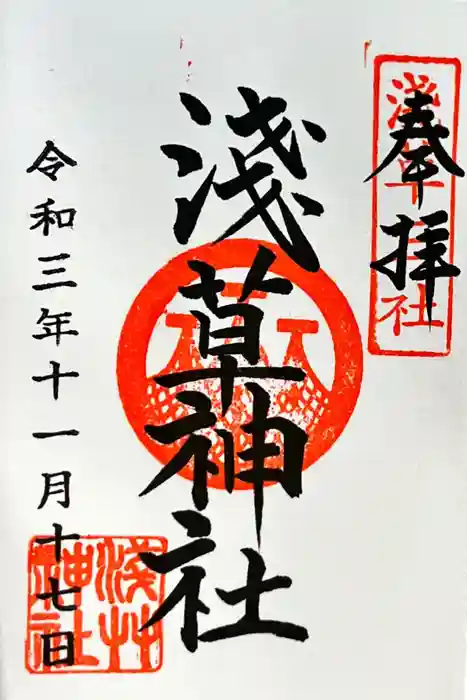 奉拝
淺草神社
淺草神社
令和三年十一月十七日
淺艸神社